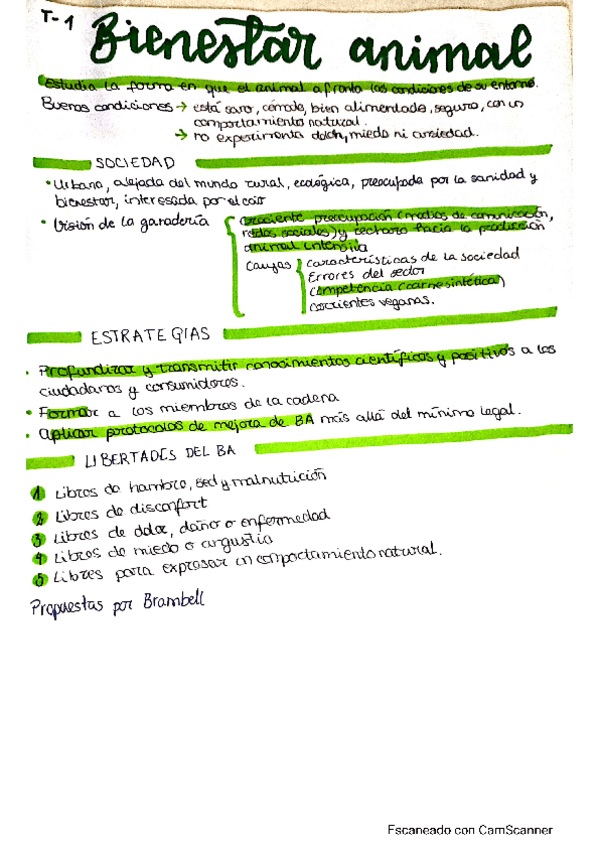 T-1 Bienestar animal
Estudia la forma en que el animal afronta las condiciones de su entorno.
Buenas condiciones → está sano, cómodo, bien alimentado, seguro, con un
comportamiento natural.
→ no experimenta dolor, miedo ni ansiedad.
SOCIEDAD
• Urbana, alejada del mundo rural, ecológica, preocupada por la sanidad y
bienestar, interesada por el
• Visión de la ganadería
Creciente preocupación (medios de comunicación,
redes sociales) y rechazo hacia la producción
animal intensiva
Causas
características de la sociedad
Errores del sector
Competencia (carne sintética)
corrientes veganas.
ESTRATEGIAS
• Profundizar y transmitir conocimientos científicos y positivos a los
ciudadanos y consumidores.
• Formar a los miembros de la cadena
• Aplicar protocolos de mejora de BA más allá del mínimo legal.
LIBERTADES DEL BA
1 Libres de hambre, sed y malnutrición
2 Libres de disconfort
3 Libres de dolor, daño o enfermedad
4 Libres de miedo o angustia
5 Libres para expresar un comportamiento natural.
Propuestas por Brambell
Escaneado con CamScanner